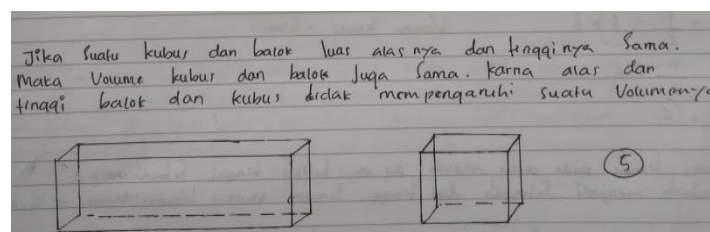 Jika suatu kubus dan balok luas alas nya dan tingginya sama.
Maka Voume kubus dan balok Juga sama. karna alas dan
tinggi balok dan kubus tidak mempengaruhi suatu Volumenya
5